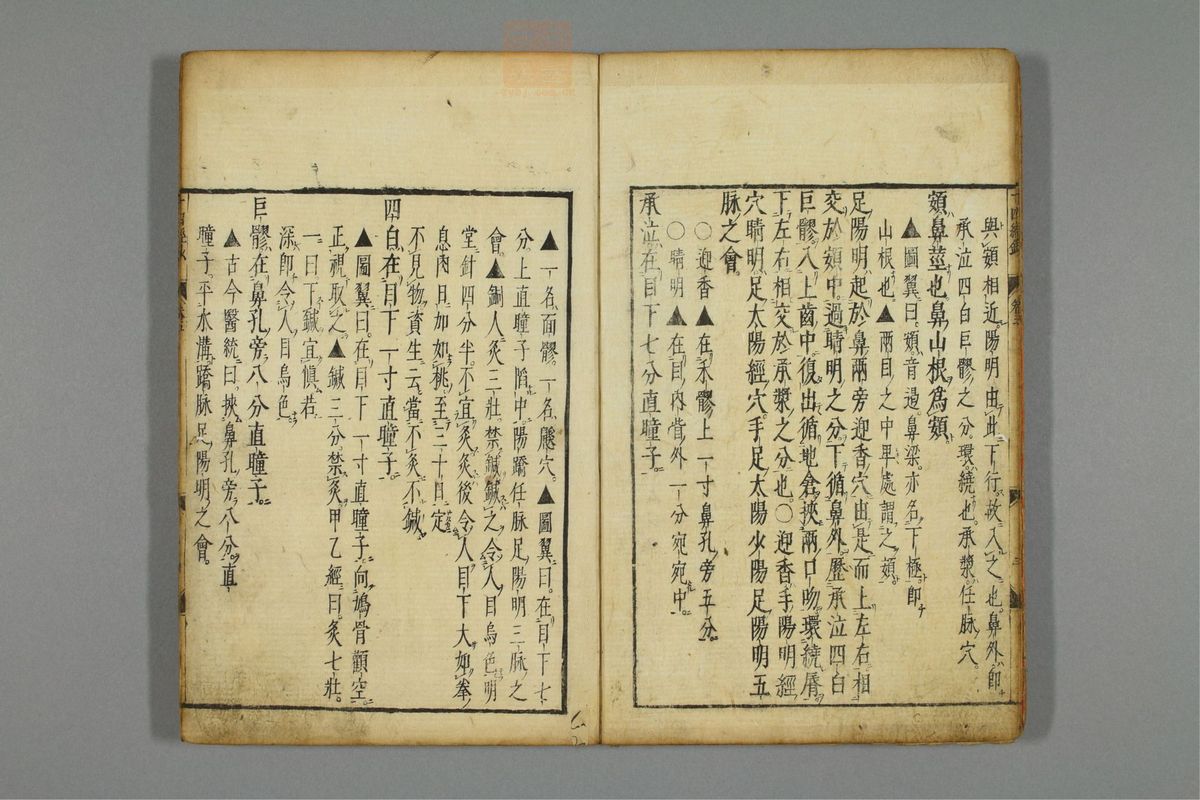 與頞相近陽明由此下行故入之也鼻外即
承泣四白巨髎之分環繞也承漿任脉穴
頞鼻莖也鼻山根爲頞
▲圖翼曰頞音遏鼻梁亦名下極即
山根也▲兩目之中畢處謂之頞
足陽明起於鼻兩旁迎香穴由是而上左右相
交於頞中過睛明之分下循鼻外歷承泣四白
巨髎入上齒中復出循地倉挾兩口吻環繞脣
下左右相交於承漿之分也〇迎香手陽明經
穴睛明足太陽經穴手足太陽少陽足陽明五
脉之會
〇迎香▲在禾髎上一寸鼻孔旁五分
〇睛明▲在目內眥外一分宛宛中
承泣在目下七分直瞳子
▲一名面髎一名鼷穴▲圖翼曰在目下七
分上直瞳子陷中陽蹻任脉足陽明三脉之
會▲銅人灸三壯禁鍼鍼之令人目烏色明
堂針四分半不宜灸灸後令人目下大如拳
息肉日加如桃至三十日定
不見物資生云當不灸不鍼
四白在目下一寸直瞳子
▲圖翼曰在目下一寸直瞳子向鳩骨顴空
正視取之▲鍼三分禁灸甲乙經曰灸七壯
一曰下鍼宜愼若
深即令人目烏色
巨髎在鼻孔旁八分直瞳子
▲古今醫統曰挾鼻孔旁八分直
瞳子平水溝蹻脉足陽明之會